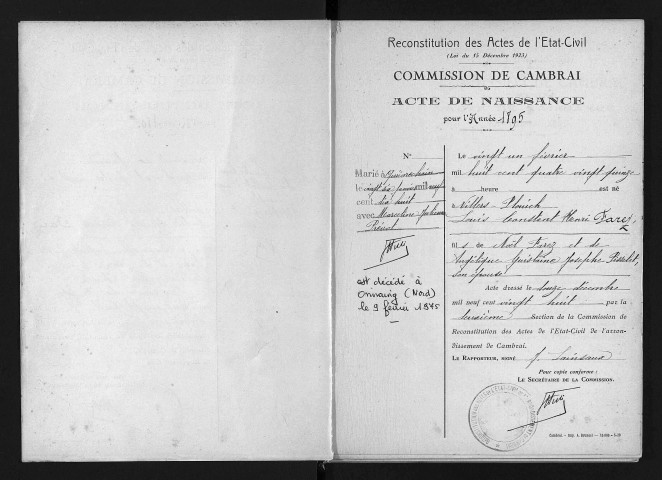 Reconstitution des Actes de l'Etat-Civil
(Loi du 15 Décembre 1923)
COMMISSION DE CAMBRAI
ACTE DE NAISSANCE
pour l'Année 1895
N°
Marié à
le vingt six janvier mil neuf
cent dix huit
avec Marceline Julienne
est décédé à
Onnaing (Nord)
le 9 février 1975
Le vingt un février
mil huit cent quatre vingt quinze
à heure est né
à Villers-Plouich
Louis Constant Henri Farez,
fils de Noël Farez et de
Angélique Guislaine Josephe
son épouse
Acte dressé le onze décembre
mil neuf cent vingt huit par la
deuxième Section de la Commission de
Reconstitution des Actes de l'Etat-Civil de l'arron-
dissement de Cambrai.
LE RAPPORTEUR, SIGNÉ J.
Pour copie conforme :
LE SECRÉTAIRE DE LA COMMISSION.